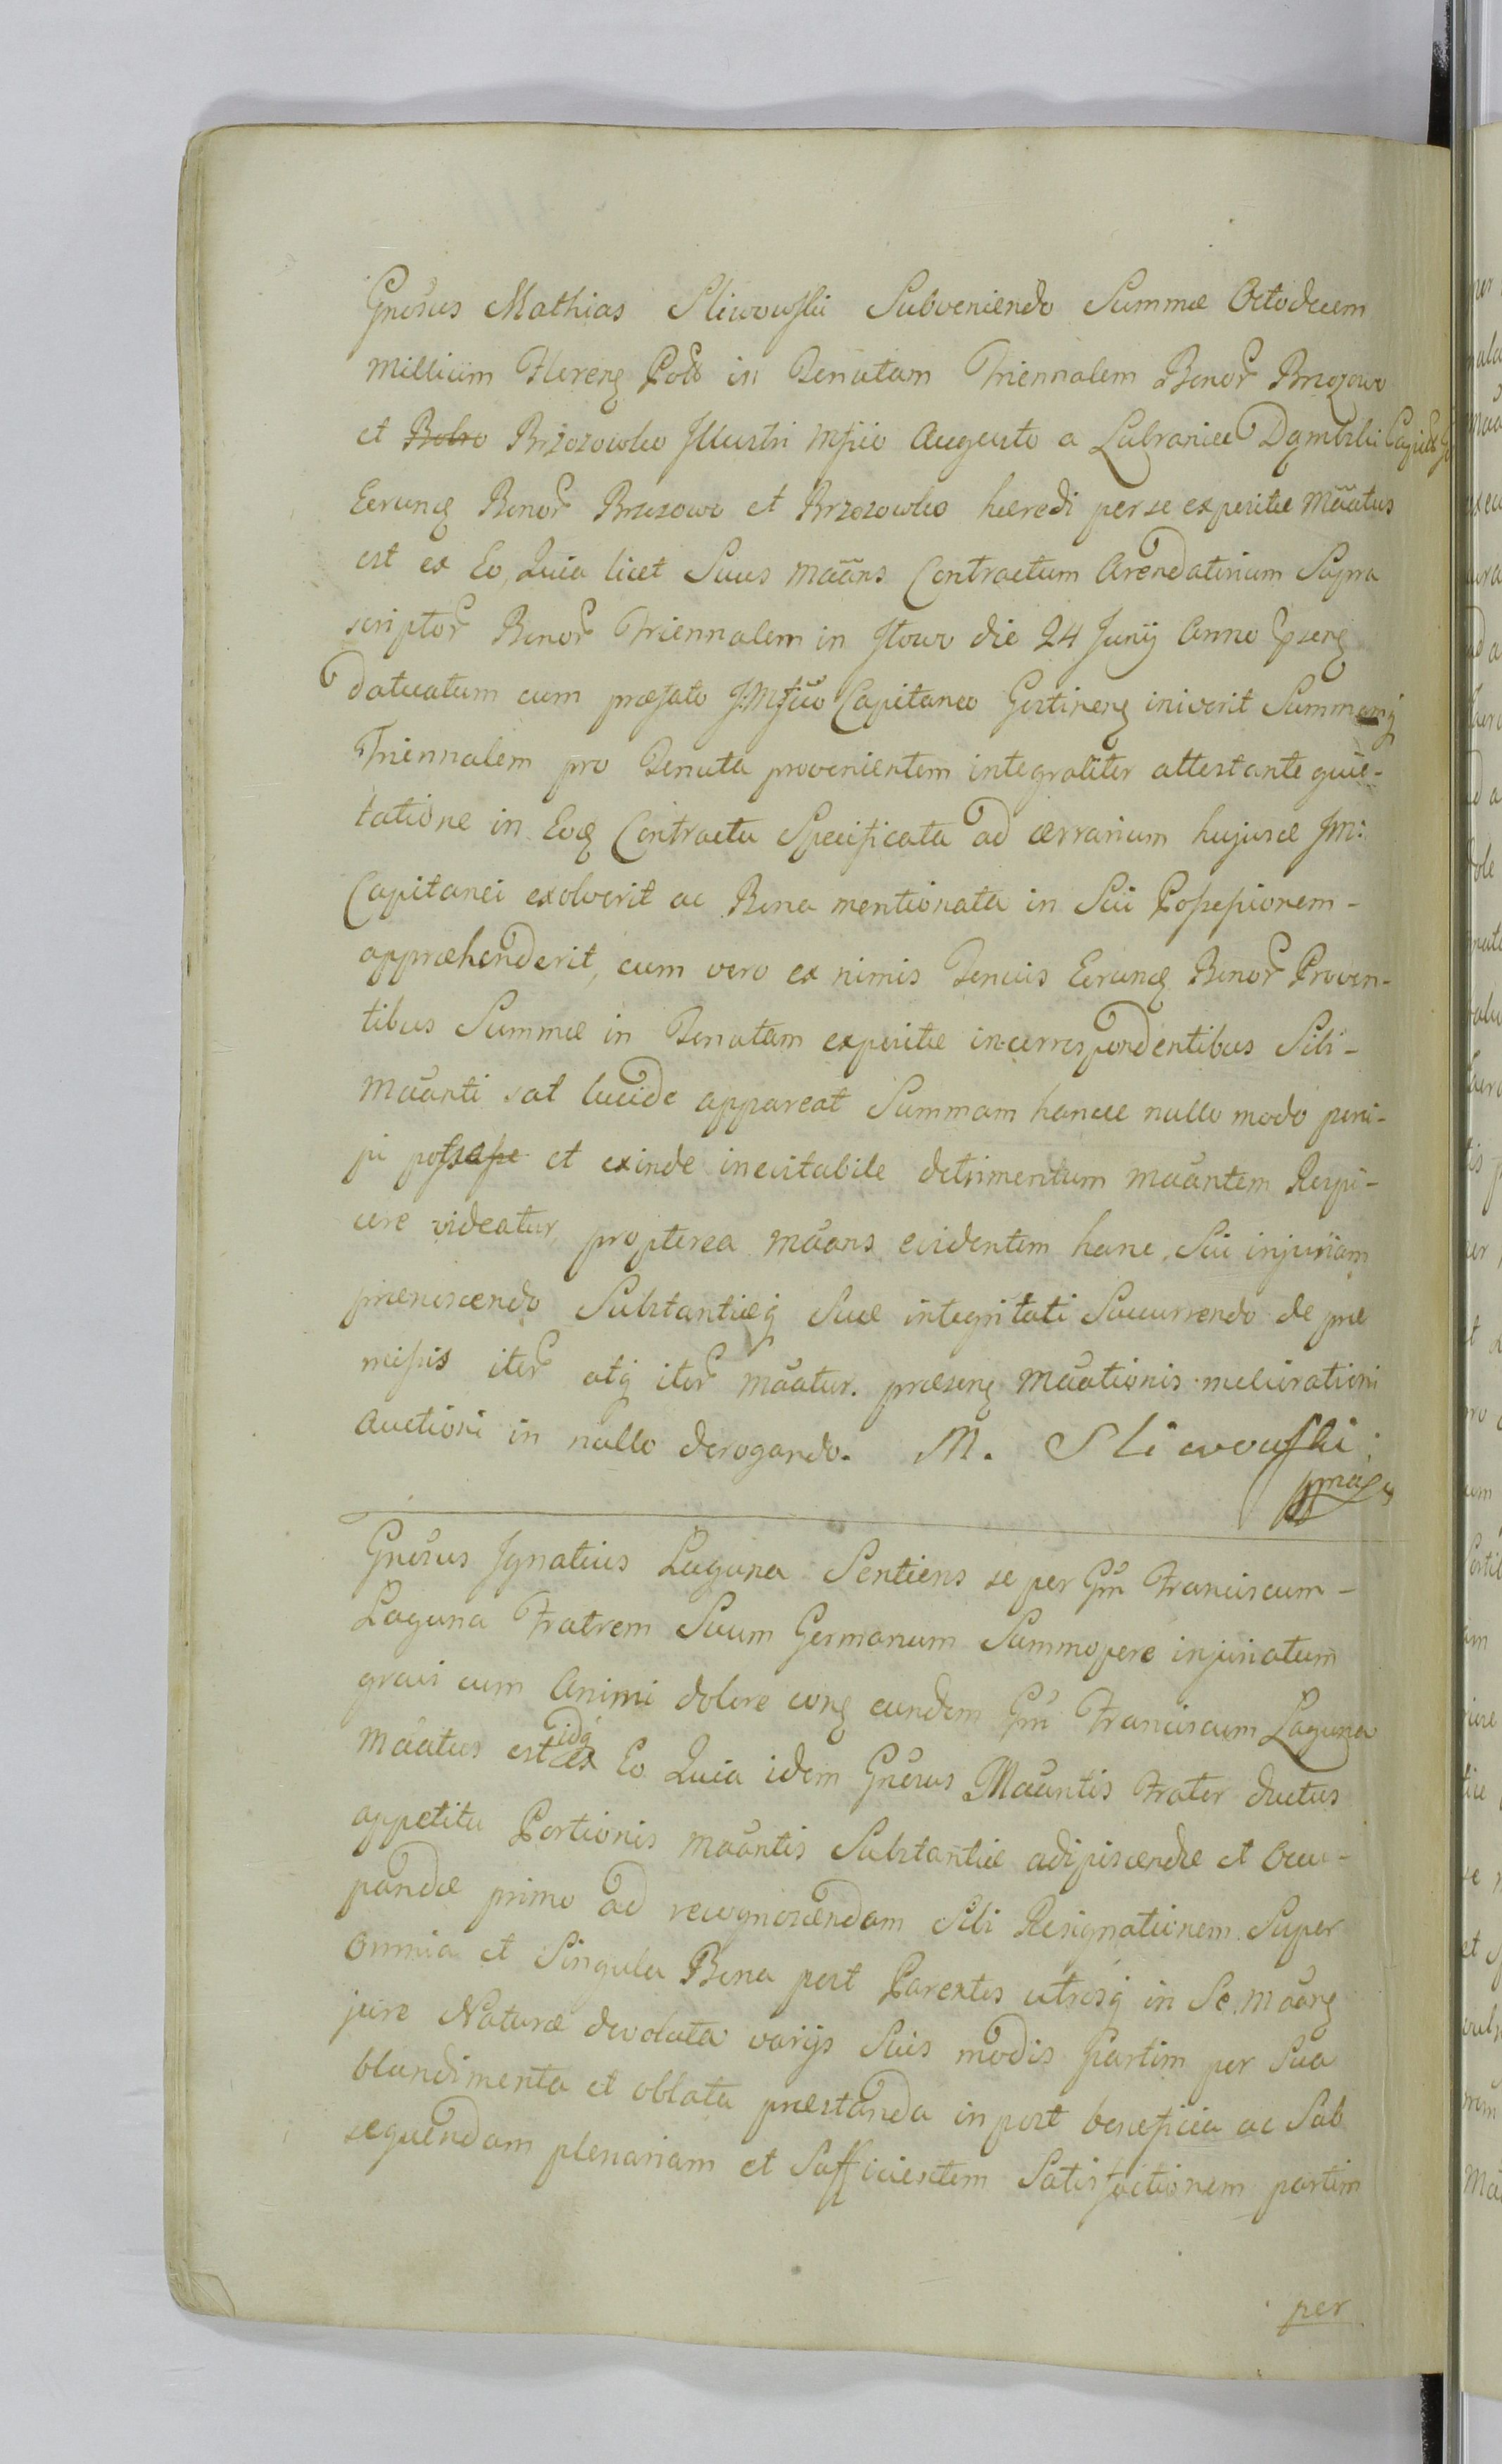 Gnosus Mathias Sliwowski Subveniendo Summæ Octodecem
millium Floreng Polō in Tenutam Triennalem Bonor Brzozowo
et Bobro Brzozowko Illustri Mfico Augusto a Lubraniec Dąmbski
Eerunq Bonor Brzozowo et Brzozowko hæredi per se expositæ Māatus
est ex Eo, Quia licet Suus Māans Contractum Arendatinium Supra
scriptor Bonor Triennalem in Itowo die 24 Junij Anno
datuatum cum præfato J.Mfico Capitaneo Gostineng iniverit Summamq
Triennalem pro Tenuta provenientem integraliter attestante quie-
tatione in Eoq Contractu Specificata ad ærrarium hujusce JM:
Capitanei exolverit ac Bona mentionata in Sui Possessionem-
appræhenderit, cum vero ex nimis Tenuis Eorunq Bonor Proven-
tibus Summæ in Tenutam expositæ incorrespondentibus Sibi-
Māanti sat lucide appareat Summam hance nullo modo perci-
pi posse et exinde inevitabile detrimentum Māantem Respi-
cere videatur, propterea Māans evidentem hanc Sui injuriam
prænoscendo Substantiæq Suæ integritati Succurrendo de præ
missis iter atq iter māatur. præseng Māationis meliorationi
auctioni in nullo derogando. M. Sliwowski
mp
Gnosus Ignatius Laguna Sentiens se per Gm Franciscum-
Laguna Fratrem Suum Germanum Summopere injuriatum
gravi cum Animi dolore cong eundem Gm Franciscum Laguna
Māatus est idq ex Eo Quia idem Gnosus Māantis Frater ductus
appetitu Portionis Māantis Substantiæ adipiscendæ et Occu-
pandæ primo ad recognoscendam Sibi Resignationem Super
Omnia et Singula Bona post Parentes utrosq in Se Māang
jure Naturæ devoluta varijs Suis modis partim per Sua
blandimenta et oblata præstanda in post beneficia ac Sub
sequendam plenariam et Sufficientem Satisfactionem partim
per